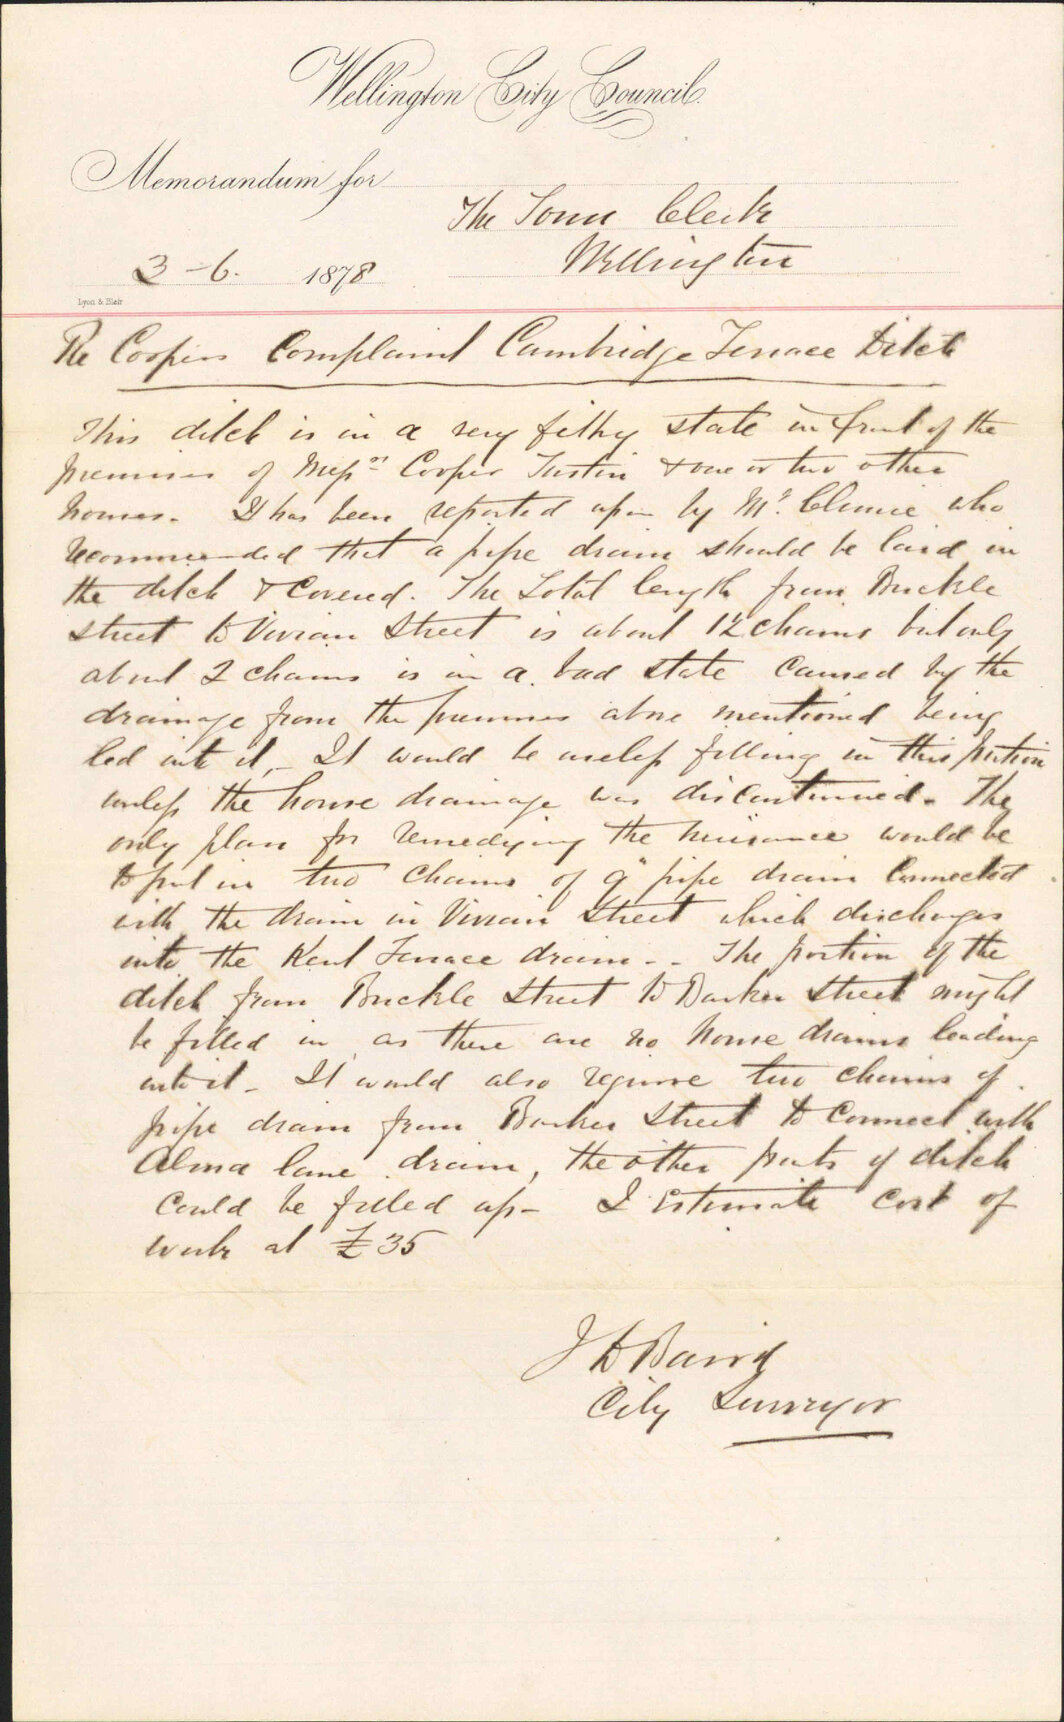 Wellington City Council.
Memorandum for
The Town Clerk
Wellington
3-6. 1878
Lyon & Blair
Re Coopers Complaint Cambridge Terrace Ditch
This ditch is in a very filthy state in front of the
premises of Messrs Cooper Tustin & one or two other
houses. It has been reported upon by Mr. Clunie who
recommended that a pipe drain should be laid in
the ditch & Covered. The Total length from Buckle
street to Vivian Street is about 12 chains but only
about 2 chains is in a bad state Caused by the
drainage from the premises above mentioned being
led into it,- It would be useless filling in this portion
unless the house drainage was discontinued. The
only plan for remedying the nuisance would be
to put in two chains of 9" pipe drain Connected
with the drain in Vivian Street which discharges
into the Kent Terrace drain-- The portion of the
ditch from Buckle Street to Barker Street might
be filled in as there are no house drains leading
into it- It would also require two chains of
pipe drain from Barker Street to Connect with
Alma lane drain, the other parts of ditch
Could be filled up- I Estimate Cost of
work at £35
J D Baird
City Surveyor